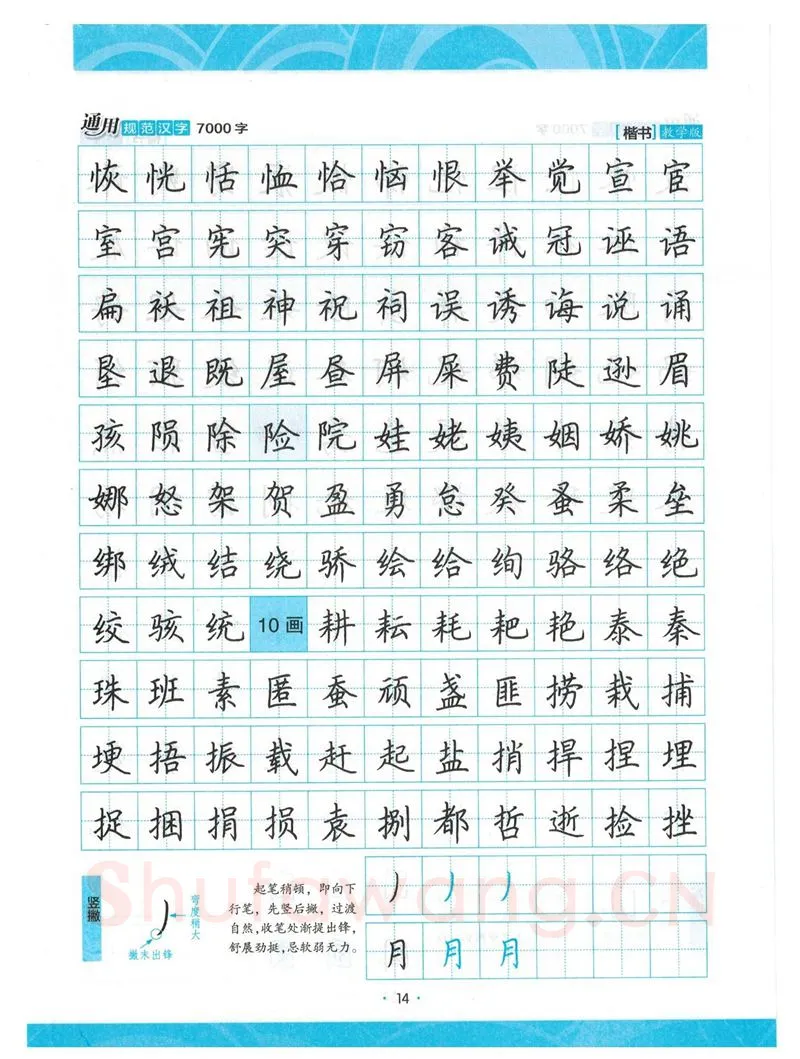 通用规范汉字 7000 字 [楷书] 教学版
恢 恍 恬 恤 恰 恼 恨 举 觉 宣 宦
室 宫 宪 突 穿 窃 客 诫 冠 诬 语
扁 袄 祖 神 祝 祠 误 诱 诲 说 诵
垦 退 既 屋 昼 屏 屎 费 陡 逊 眉
孩 陨 除 险 院 娃 姥 姨 姻 娇 姚
娜 怒 架 贺 盈 勇 怠 癸 蚤 柔 垒
绑 绒 结 绕 骄 绘 给 绚 骆 络 绝
绞 骇 统 10 画 耕 耘 耗 耙 艳 泰 秦
珠 班 素 匿 蚕 顽 盏 匪 捞 栽 捕
埂 捂 振 载 赶 起 盐 捎 捍 捏 埋
捉 捆 捐 损 袁 捌 都 哲 逝 捡 挫
竖撇
弯度稍大
撇末出锋
起笔稍顿，即向下
行笔，先竖后撇，过渡
自然，收笔处渐提出锋，
舒展劲挺，忌软弱无力。
丿 丿 丿
月 月 月
Shufawang.CN
· 14 ·